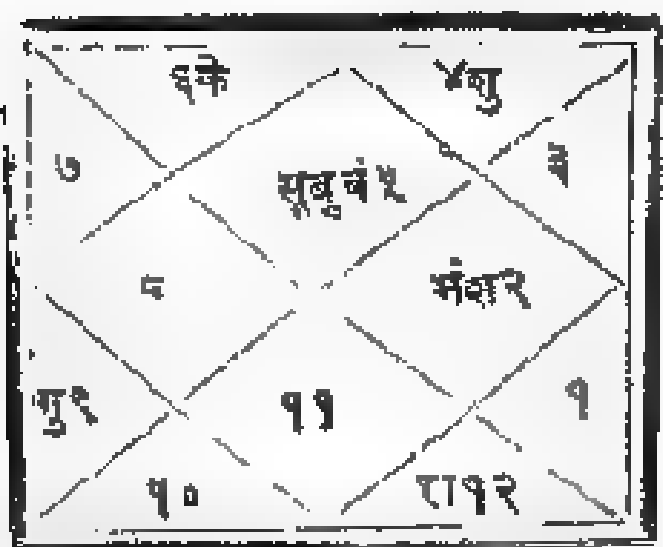 ६के ४शु
७ सूबुचं५ ३
८ मंश२
गु९ ११ १
१० रा१२